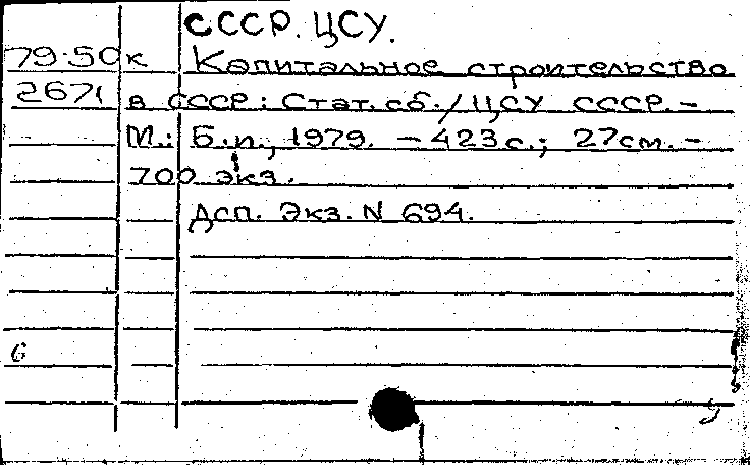 СССР. ЦСУ.
79-50к Капитальное строительство
2671 в СССР: Стат. сб./ ЦСУ СССР. -
М.: Б.и., 1979. - 423 с.; 27см. -
700 экз.
Дсп. Экз. N 694.
6